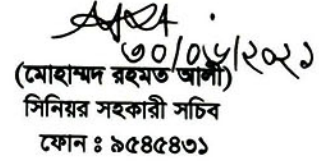 ৩০/০৬/২০২১
(মোহাম্মদ রহমত আলী)
সিনিয়র সহকারী সচিব
ফোন ঃ ৯৫৪৫৪৩১